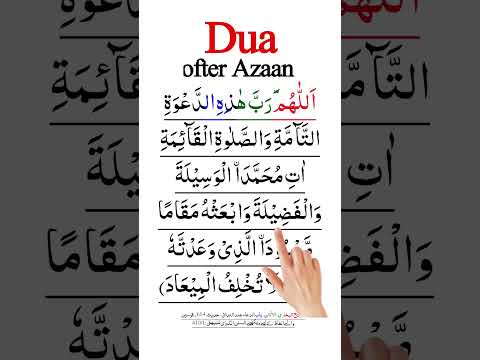 Dua
ofter Azaan
اَللّٰهُمَّ رَبَّ هٰذِهِ الدَّعْوَةِ
التَّآمَّةِ وَالصَّلٰوةِ الْقَآئِمَةِ
اٰتِ مُحَمَّدَاۨ الْوَسِيْلَةَ
وَالْفَضِيْلَةَ وَابْعَثْهُ مَقَامًا
الَّذِيْ وَعَدْتَّهٗ
تُخْلِفُ الْمِيْعَادَ)